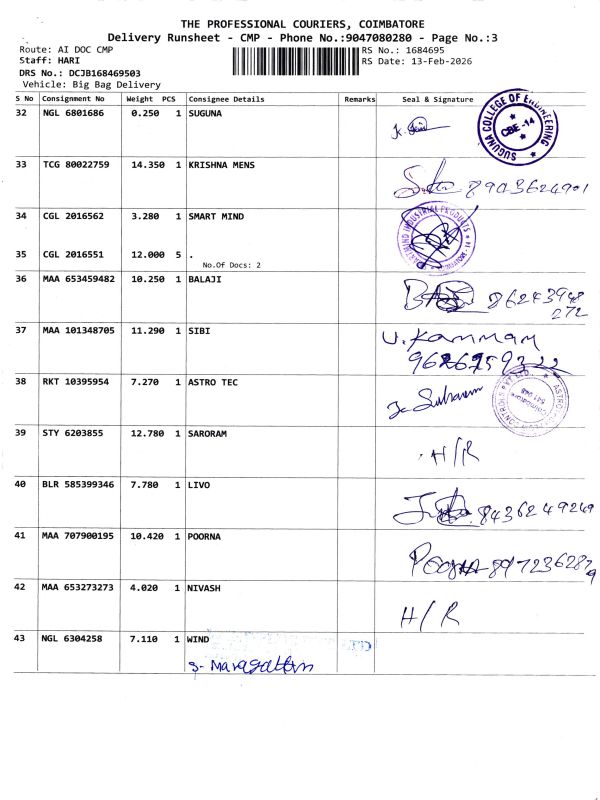 THE PROFESSIONAL COURIERS, COIMBATORE
Delivery Runsheet - CMP - Phone No.:9047080280 - Page No.:3
Route: AI DOC CMP
RS No.: 1684695
Staff: HARI
RS Date: 13-Feb-2026
DRS No.: DCJB168469503
Vehicle: Big Bag Delivery
S No Consignment No Weight PCS Consignee Details Remarks Seal & Signature
32 NGL 6801686 0.250 1 SUGUNA
SUGUNA COLLEGE OF ENGINEERING
CBE-14
33 TCG 80022759 14.350 1 KRISHNA MENS
8903624901
34 CGL 2016562 3.280 1 SMART MIND
35 CGL 2016551 12.000 5 .
No.Of Docs: 2
36 MAA 653459482 10.250 1 BALAJI
86243948
272
37 MAA 101348705 11.290 1 SIBI
38 RKT 10395954 7.270 1 ASTRO TEC
39 STY 6203855 12.780 1 SARORAM
H/R
40 BLR 585399346 7.780 1 LIVO
8436249249
41 MAA 707900195 10.420 1 POORNA
42 MAA 653273273 4.020 1 NIVASH
H/R
43 NGL 6304258 7.110 1 WIND